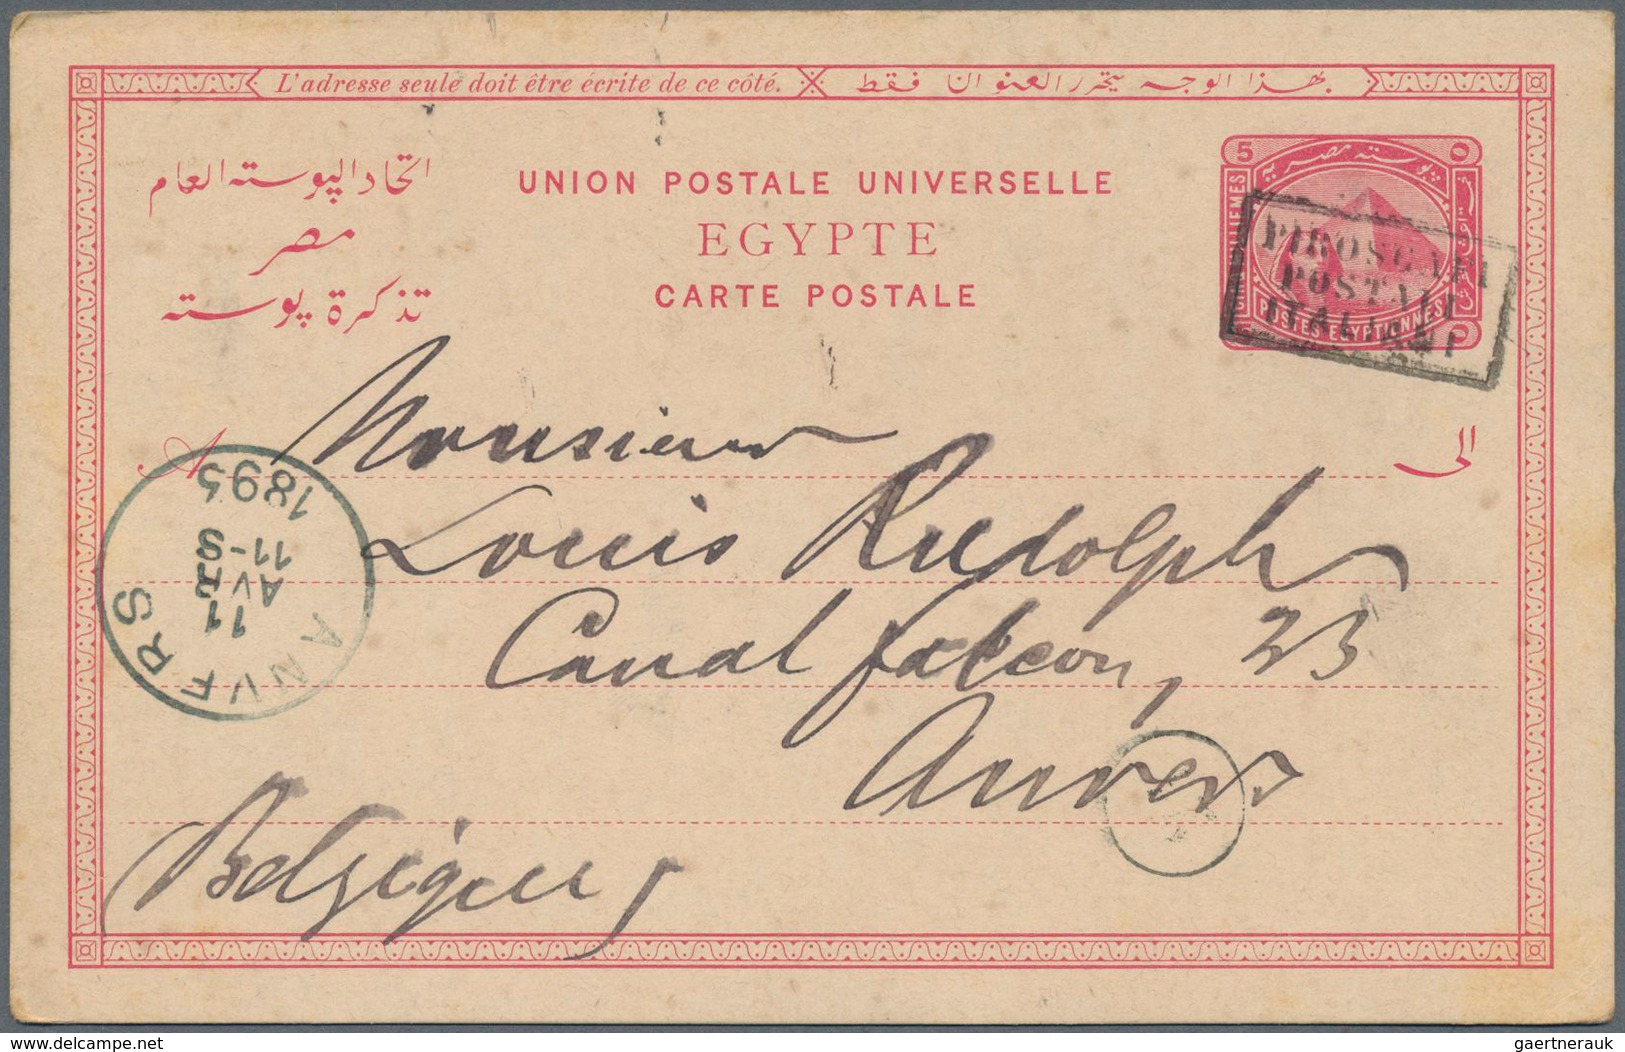 L'adresse seule doit être écrite de ce côté. بهذا الوجه يتحرر العنوان فقط
اتحاد البوستة العام
مصر
تذكرة بوستة
UNION POSTALE UNIVERSELLE
EGYPTE
CARTE POSTALE
5 بوستة مصرية ٥
POSTES EGYPTIENNES
PIROSCAFI
POSTALI
ITALIANI
A
الى
Monsieur
Louis Rudolph
Canal falcon, 23
Anvers
Belgique
ANVERS
11
AVRIL
11-S
1895
delcampe.net
gaertnerauk